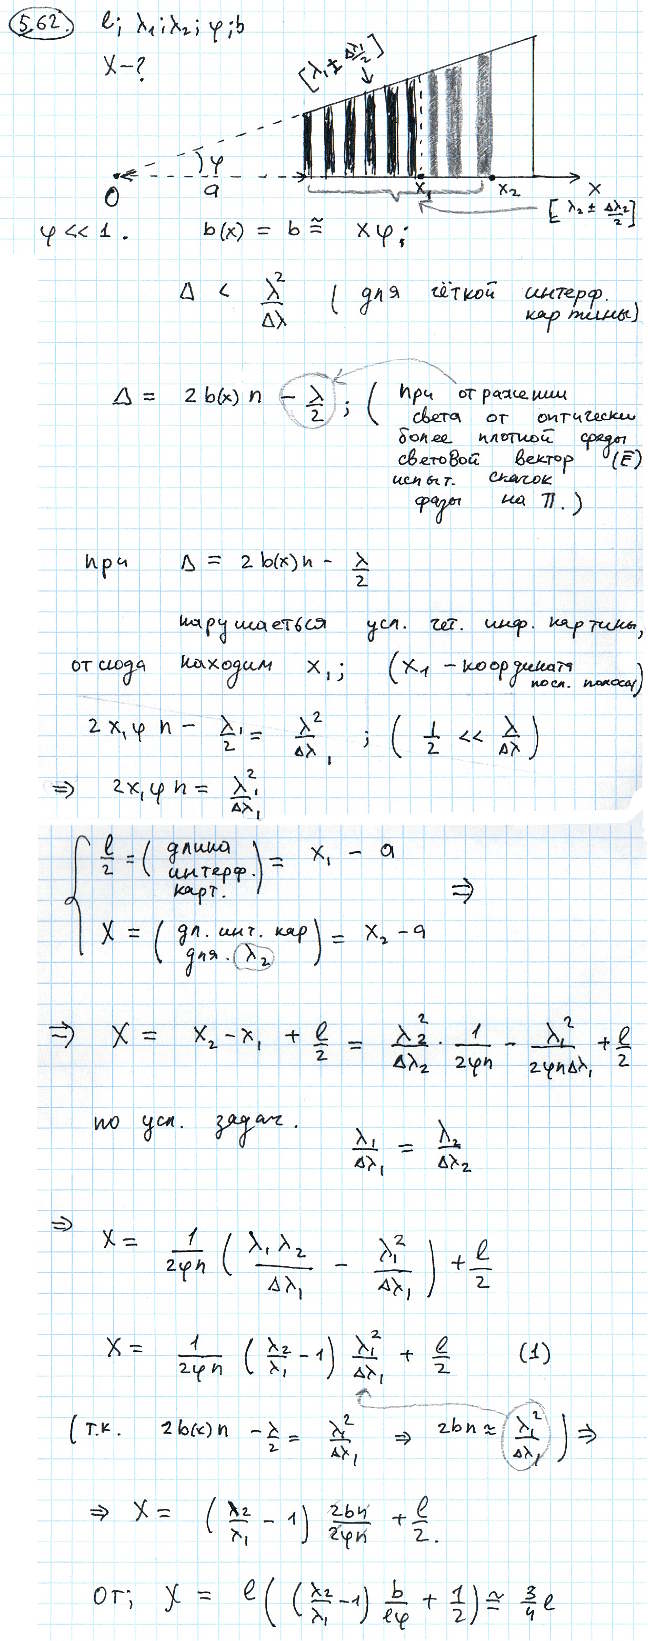 5.62. l; λ₁; λ₂; φ; b
X - ?
[λ₁ ± Δλ₁/2]
φ
a
O
x₁
x₂
x
[λ₂ ± Δλ₂/2]
φ << 1. b(x) = b ≅ xφ;
Δ < λ²/Δλ (для чёткой интерф. картины)
Δ = 2b(x)n - λ/2; (при отражении
света от оптически
более плотной среды
световой вектор (E̅)
испыт. скачок
фазы на π.)
при Δ = 2b(x)n - λ/2
нарушаеться усл. чёт. инф. картины,
отсюда находим x₁; (x₁ - координата
посл. полосы)
2x₁φn - λ₁/2 = λ₁²/Δλ₁ ; (1/2 << λ/Δλ)
⇒ 2x₁φn = λ₁²/Δλ₁
{ l/2 = (длина интерф. карт.) = x₁ - a
⇒
X = (дл. инт. кар для. λ₂) = x₂ - a
⇒ X = x₂ - x₁ + l/2 = λ₂²/Δλ₂ · 1/2φn - λ₁²/2φnΔλ₁ + l/2
по усл. задач. λ₁/Δλ₁ = λ₂/Δλ₂
⇒
X = 1/2φn (λ₁λ₂/Δλ₁ - λ₁²/Δλ₁) + l/2
X = 1/2φn (λ₂/λ₁ - 1) λ₁²/Δλ₁ + l/2 (1)
(т.к. 2b(x)n - λ/2 = λ₁²/Δλ₁ ⇒ 2bn ≈ λ₁²/Δλ₁) ⇒
⇒ X = (λ₂/λ₁ - 1) 2bn/2φn + l/2.
от; X = l((λ₂/λ₁ - 1) b/lφ + 1/2) ≅ 3/4 l